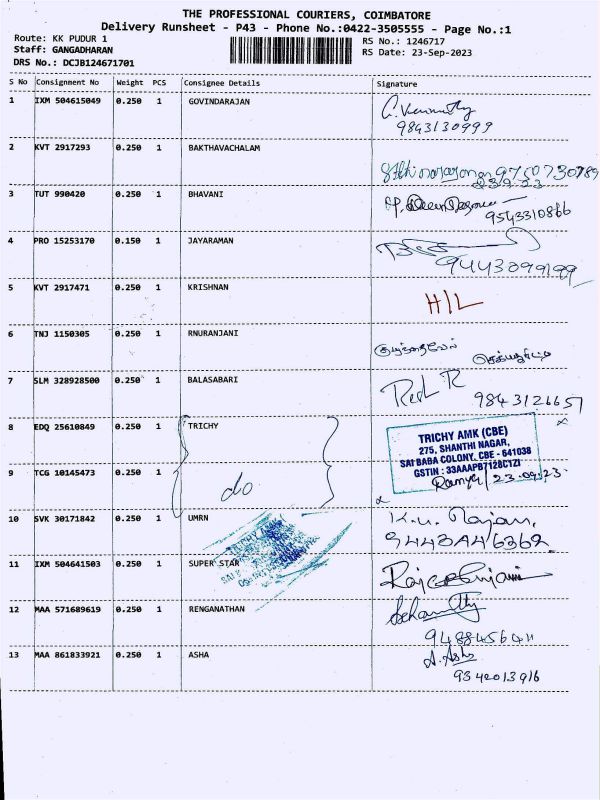 THE PROFESSIONAL COURIERS, COIMBATORE
Delivery Runsheet - P43 - Phone No.:0422-3505555 - Page No.:1
Route: KK PUDUR 1
RS No.: 1246717
Staff: GANGADHARAN
RS Date: 23-Sep-2023
DRS No.: DCJB124671701
S No Consignment No Weight PCS Consignee Details Signature
1 IXM 504615049 0.250 1 GOVINDARAJAN
9843130999
2 KVT 2917293 0.250 1 BAKTHAVACHALAM
9750730789
23.9.23
3 TUT 990420 0.250 1 BHAVANI
9543310866
4 PRO 15253170 0.150 1 JAYARAMAN
9443099199
5 KVT 2917471 0.250 1 KRISHNAN
H/L
6 TNJ 1150305 0.250 1 RNURANJANI
7 SLM 328928500 0.250 1 BALASABARI
9843126657
8 EDQ 25610849 0.250 1 TRICHY
TRICHY AMK (CBE)
275, SHANTHI NAGAR,
SAI BABA COLONY, CBE - 641038
GSTIN : 33AAAPB7128C1ZI
9 TCG 10145473 0.250 1 do
Ramya 23.09.23
10 SVK 30171842 0.250 1 UMRN
K.u. Rajan,
11 IXM 504641503 0.250 1 SUPER STAR
12 MAA 571689619 0.250 1 RENGANATHAN
9488456411
13 MAA 861833921 0.250 1 ASHA
A. Asha
9342013916